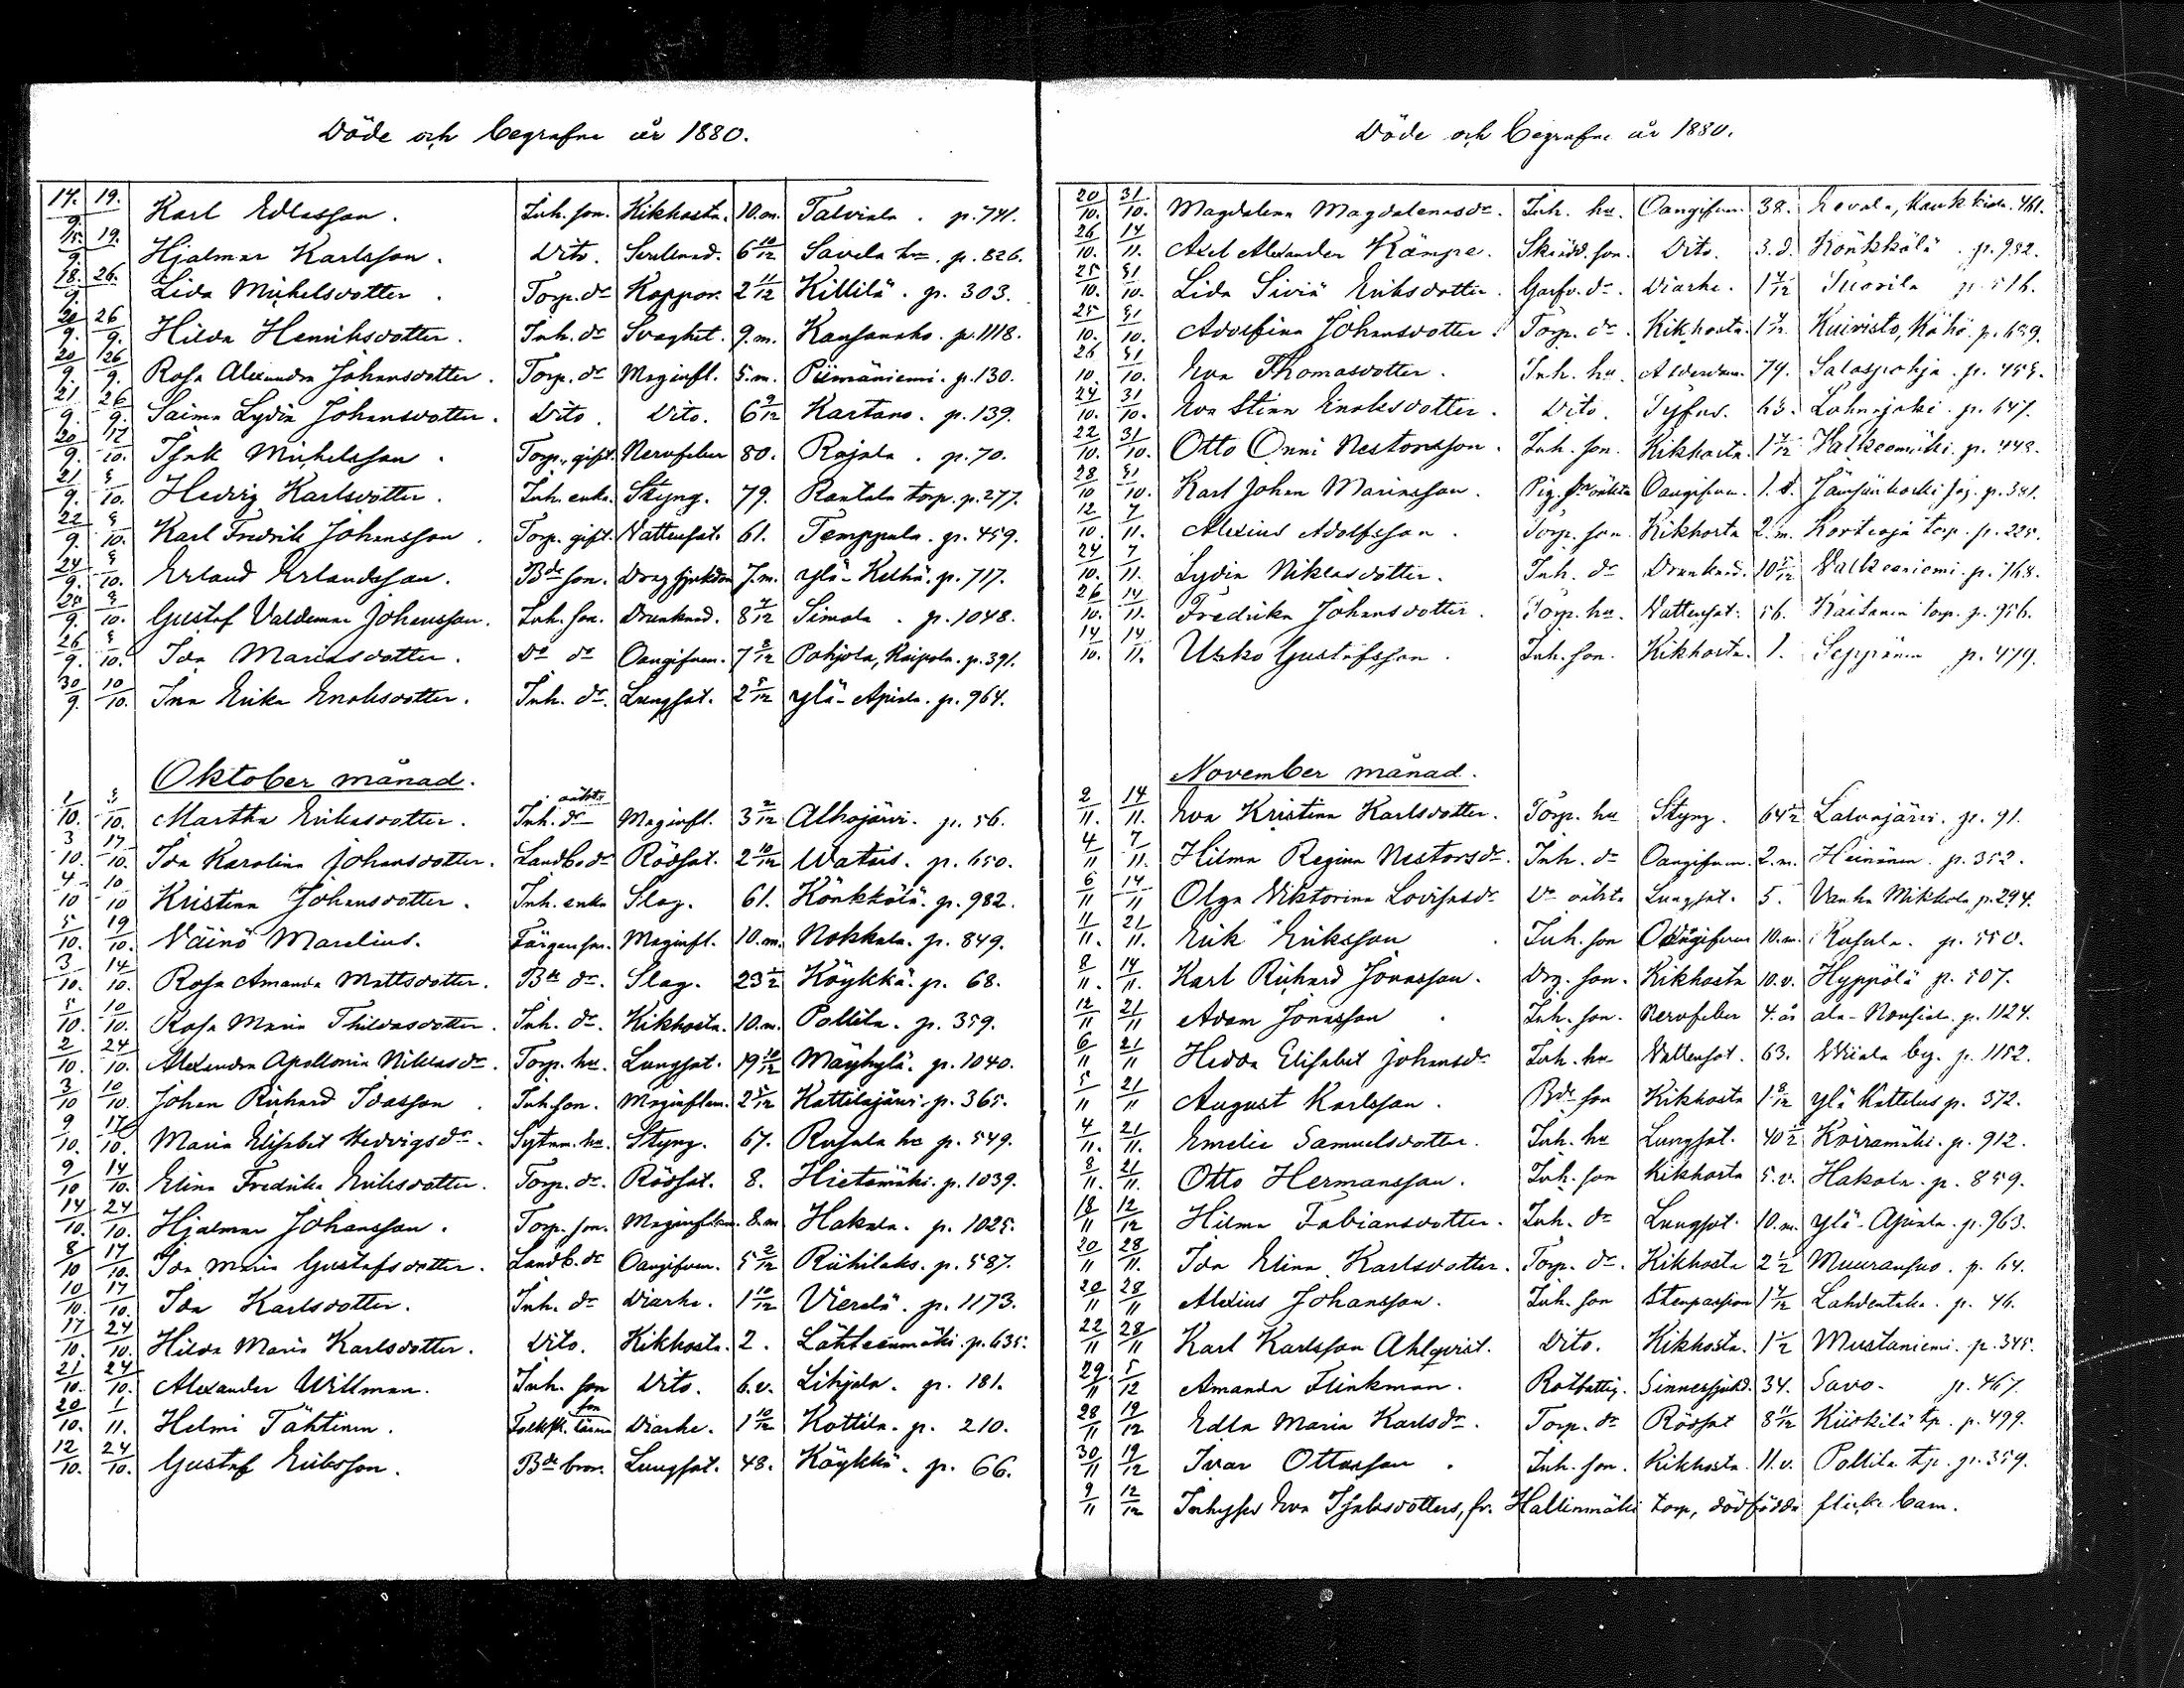 Döde och begrafne år 1880.
14/9. 19. Karl Edlasson. Inh. son. Kikhosta. 10.m. Talviala. p. 741.
15/9. 19. Hjalmar Karlsson. Dito. 6 10/12 Savela p. 826.
18/9. 26. Lida Michelsdotter. Torp. dr Koppor. 2 11/12 Killilä. p. 303.
20/9. 26/9. Hilda Henriksdotter. Inh. dr Svaghet. 9.m. Kansanaho. p. 1118.
20/9. 26/9. Rosa Alexandra Johansdotter. Torp. dr Maginfl. 5.m. Piimäniemi. p. 130.
21/9. 26/9. Saima Lydia Johansdotter. Dito. Dito. 6 9/12 Kartano. p. 139.
20/9. 17/10. Isak Michelsson. Torp. gift. Nervfeber 80. Rajala. p. 70.
21/9. 3/10. Hedvig Karlsdotter. Inh. enka. Styng. 79. Rantala torp. p. 277.
22/9. 3/10. Karl Fredrik Johansson. Torp. gift. Vattensot. 61. Temppula. p. 459.
24/9. 3/10. Erland Erlandsson. Bde son. 7.m. Ylä-Kelhä. p. 717.
25/9. 3/10. Gustaf Valdemar Johansson. Inh. son. Drunknad. 8 4/12 Simola. p. 1048.
26/9. 3/10. Ida Mariasdotter. Do dr Oangifven. 7 8/12 Pohjola, Kaipola. p. 391.
30/9. 10/10. Ina Erika Enoksdotter. Inh. dr. Lungsot. 2 5/12 Ylä-Apiala. p. 964.
Oktober månad.
1/10. 3/10. Martha Eriksdotter. Inh. dr oäkta Maginfl. 3 2/12 Alhojärvi. p. 56.
3/10. 17/10. Ida Karolina Johansdotter. Landb. dr Rödsot. 2 10/12 Watais. p. 650.
4/10 10/10 Kristina Johansdotter. Inh. enka Slag. 61. Könkkölä. p. 982.
5/10. 19/10. Väinö Marelius. Färgare son. Maginfl. 10.m. Nokkala. p. 849.
3/10. 14/10. Rosa Amanda Mattsdotter. Bde dr. Slag. 23 1/2 Köykkä. p. 68.
5/10. 10/10. Rosa Maria Thildasdotter. Inh. dr. Kikhosta. 10.m. Pollila. p. 359.
2/10. 24/10. Alexandra Apollonia Niklasdr. Torp. hu. Lungsot. 19 10/12 Mäyhylä. p. 1040.
3/10 10/10. Johan Richard Idasson. Inh. son. Maginflam. 2 5/12 Kattilajärvi. p. 365.
9/10. 17/10. Maria Elisabet Hedvigsdr. Sytnm. hu. Styng. 67. Rusala p. 549.
9/10 14/10. Elina Fredrika Eriksdotter. Torp. dr. Rödsot. 8. Hietamäki. p. 1039.
14/10. 24/10. Hjalmar Johansson. Torp. son. Maginflam. 8.m Hakala. p. 1025.
8/10 17/10. Ida Maria Gustafsdotter. Landb. dr Oangifven. 5 2/12 Riihilaks. p. 587.
10/10. 17/10. Ida Karlsdotter. Inh. dr Diarhe. 1 10/12 Vierelä. p. 1173.
17/10. 24/10. Hilda Maria Karlsdotter. Dito. Kikhosta. 2. Lähteenmäki. p. 635.
21/10. 24/10. Alexander Willman. Inh. son Dito. 6.v. Lihjala. p. 181.
20/10. 1/11. Helmi Tähtinen. Folksk. Diarhe. 1 10/12 Kottila. p. 210.
12/10. 24/10. Gustaf Eriksson. Bde bror. Lungsot. 48. Köykkä. p. 66.
Döde och begrafne år 1880.
20/10. 31/10. Magdalena Magdalenasdr. Inh. hu. Oangifven. 38. Eevala, p. 461.
26/10. 14/11. Axel Alexander Kämpe. Skrädd. son. Dito. 3.d. Könkkölä. p. 982.
25/10. 31/10. Lida Siviä Eriksdotter. Garfv. dr. Diarhe. 1 4/12 Tuorila p. 516.
25/10. 31/10. Adolfina Johansdotter. Torp. dr. Kikhosta. Kuivisto, Kähö. p. 689.
26/10. 31/10. Eva Thomasdotter. Inh. hu. Ålderdom. 79. Salospohja. p. 455.
24/10. 31/10. Eva Stina Enoksdotter. Dito. Tyfus. 63. Lahnajoki. p. 647.
22/10. 31/10. Otto Onni Nestorsson. Inh. son. Kikhosta. 1 4/12 Valkeamäki. p. 448.
28/10 31/10. Karl Johan Mariasson. Pig. son oäkta Oangifven. 1.d. p. 381.
12/10. 7/11. Alexius Adolfsson. Torp. son. Kikhosta 2.m. Korteoja torp. p. 225.
24/10. 7/11. Lydia Niklasdotter. Inh. dr Drunknad. 10 5/12 Valkeaniemi. p. 768.
26/10. 14/11. Fredrika Johansdotter. Torp. hu. Vattensot. 56. Kaitanen torp. p. 956.
14/10. 14/11. Usko Gustafsson. Inh. son. Kikhosta. 1. Seppänen p. 479.
November månad.
2/11. 14/11. Eva Kristina Karlsdotter. Torp. hu Styng. 64 1/2 Lalvajärvi. p. 91.
4/11 7/11. Hilma Regina Nestorsdr. Inh. dr Oangifven. 2.m. Heinänen. p. 352.
6/11 14/11 Olga Viktorina Lovisasdr Dr oäkta Lungsot. 5. Vanha Mikkola p. 294.
11/11. 21/11. Erik Eriksson Inh. son Oangifven 10.m. Rusula. p. 550.
8/11. 14/11. Karl Richard Jonasson. Drg. son. Kikhosta 10.v. Hyppölä p. 507.
12/11 21/11 Adam Jonasson. Inh. son. Nervfeber 4.år p. 1124.
6/11 21/11 Hedda Elisabet Johansdr Inh. hu Vattensot. 63. Wiiala by. p. 1152.
5/11 21/11 August Karlsson. Bde son Kikhosta 1 8/12 Ylä Kattelus p. 372.
4/11. 21/11. Emelie Samuelsdotter. Inh. hu Lungsot. 40 1/2 Koiramäki. p. 912.
8/11. 21/11. Otto Hermansson. Inh. son Kikhosta 5.v. Hakola. p. 859.
18/11 12/12 Hilma Fabiansdotter. Inh. dr Lungsot. 10.m. Ylä-Apiala. p. 963.
20/11 28/11. Ida Elina Karlsdotter. Torp. dr. Kikhosta 2 1/2 Muuransuo. p. 64.
20/11 28/11 Alexius Johansson. Inh. son Stenpassion 1 4/12 Lahdentaka. p. 46.
22/11 28/11 Karl Karlsson Ahlqvist. Dito. Kikhosta. 1 1/2 Mustaniemi. p. 345.
29/11 5/12 Amanda Flinkman. Rotfattig. Sinnessjukd. 34. Savo. p. 467.
28/11 19/12 Edla Maria Karlsdr. Torp. dr Rödsot 8 11/12 Kiiskilä tp. p. 499.
30/11 19/12 Ivar Ottosson. Inh. son. Kikhosta. 11.v. Pollila tp. p. 359.
9/11 12/12 Inhyses Eva Isaksdotters, fr. Hallinmäki torp, dödfödda flicke barn.